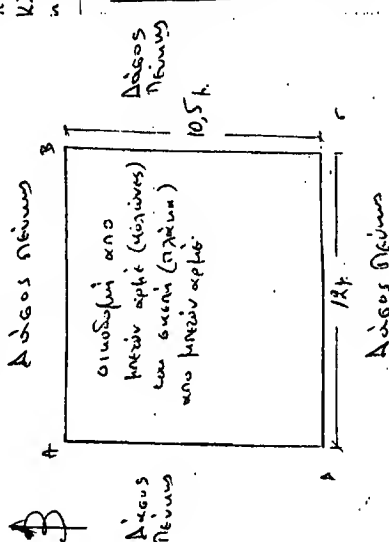 Δάσος Πεύκης
A
B
Δάσος
Πεύκης
οικοδομή απο
μπετόν αρμέ (κολώνες)
και σκεπή (πλάκα)
απο μπετόν αρμέ.
10,5 μ.
Δάσος
Πεύκης
12 μ.
Δ
Γ
Δάσος Πεύκης